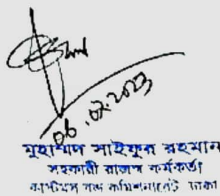 06.02.2023
মুহাম্মদ সাইফুর রহমান
সহকারী রাজস্ব কর্মকর্তা
কাস্টমস বন্ড কমিশনারেট ঢাকা